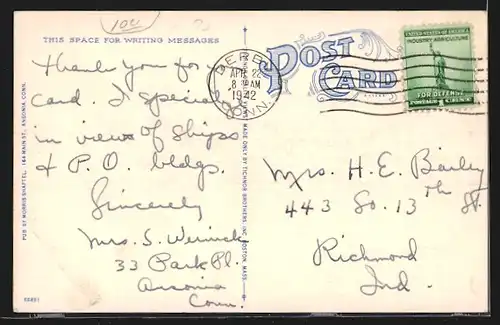 100
THIS SPACE FOR WRITING MESSAGES
POST
CARD
DERBY
APR 22
8 AM
1942
CONN.
UNITED STATES OF AMERICA
INDUSTRY AGRICULTURE
FOR DEFENSE
POSTAGE 1 CENT
Thank you for
card. I special
in views of Ships
& P.O. bldgs.
Sincerely
Mrs. S. Wernick
33 Park Pl.
Ansonia
Conn.
PUB BY MORRIS SHAFTEL, 184 MAIN ST., ANSONIA CONN.
MADE ONLY BY TICHNOR BROTHERS, INC., BOSTON, MASS.
Mrs. H. E. Bailey
443 So. 13th St.
Richmond
Ind.